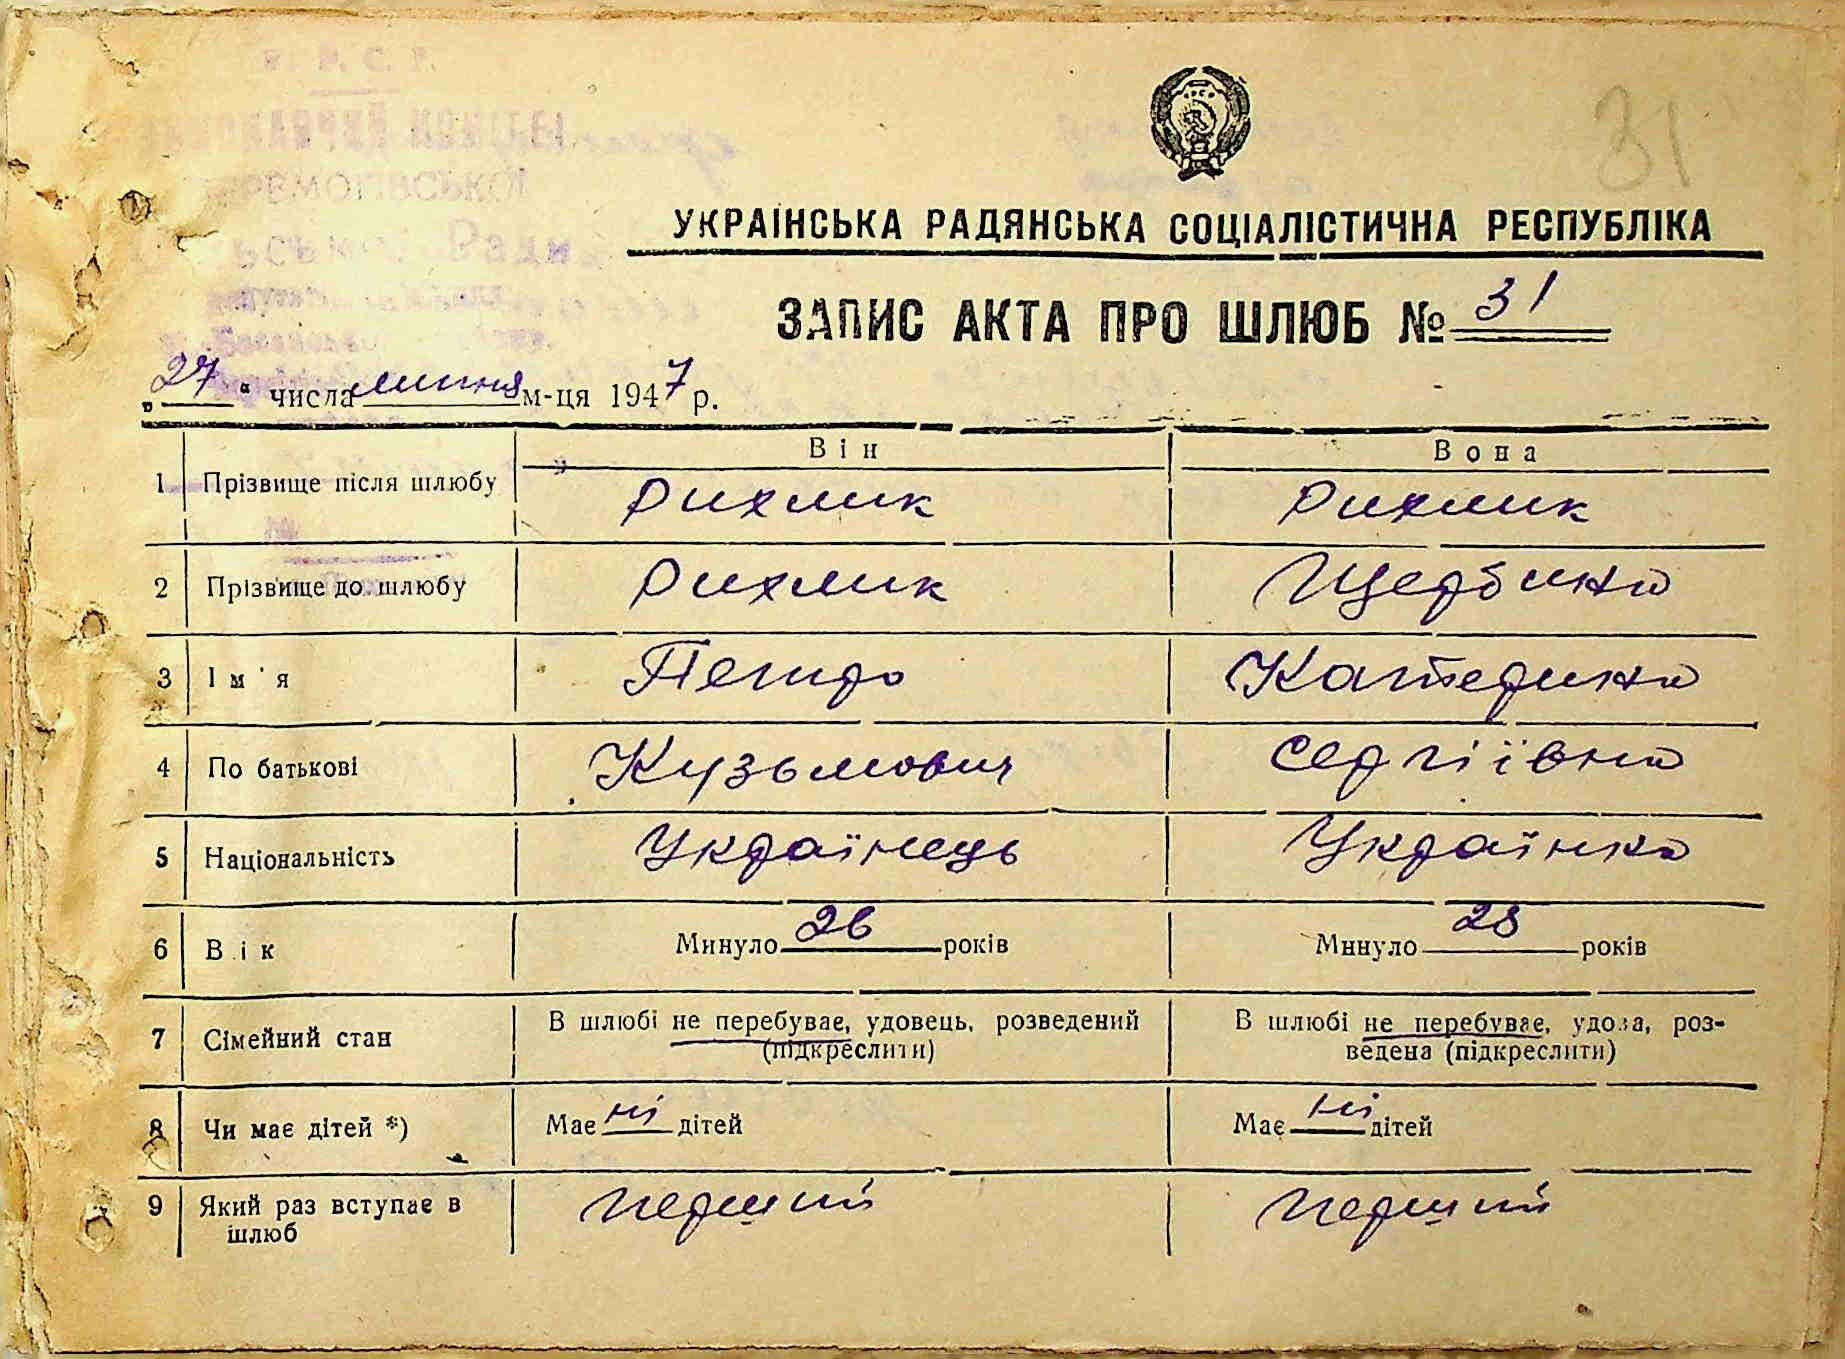 31
УКРАЇНСЬКА РАДЯНСЬКА СОЦІАЛІСТИЧНА РЕСПУБЛІКА
ЗАПИС АКТА ПРО ШЛЮБ № 31
„27“ числа липня м-ця 1947 р.
Він Вона
1 Прізвище після шлюбу Рихлик Рихлик
2 Прізвище до шлюбу Рихлик Щербина
3 Ім'я Петро Катерина
4 По батькові Кузьмович Сергіївна
5 Національність Українець Українка
6 Вік Минуло 26 років Минуло 28 років
7 Сімейний стан В шлюбі не перебуває, удовець, розведений (підкреслити) В шлюбі не перебуває, удова, роз-
ведена (підкреслити)
8 Чи має дітей *) Має ні дітей Має ні дітей
9 Який раз вступає в шлюб перший перший